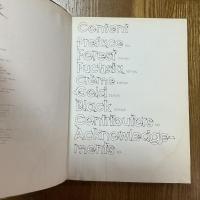 Content
Preface
Forest
Fuchsia
Crème
Gold
Black
Contributors
Acknowledge-
ments